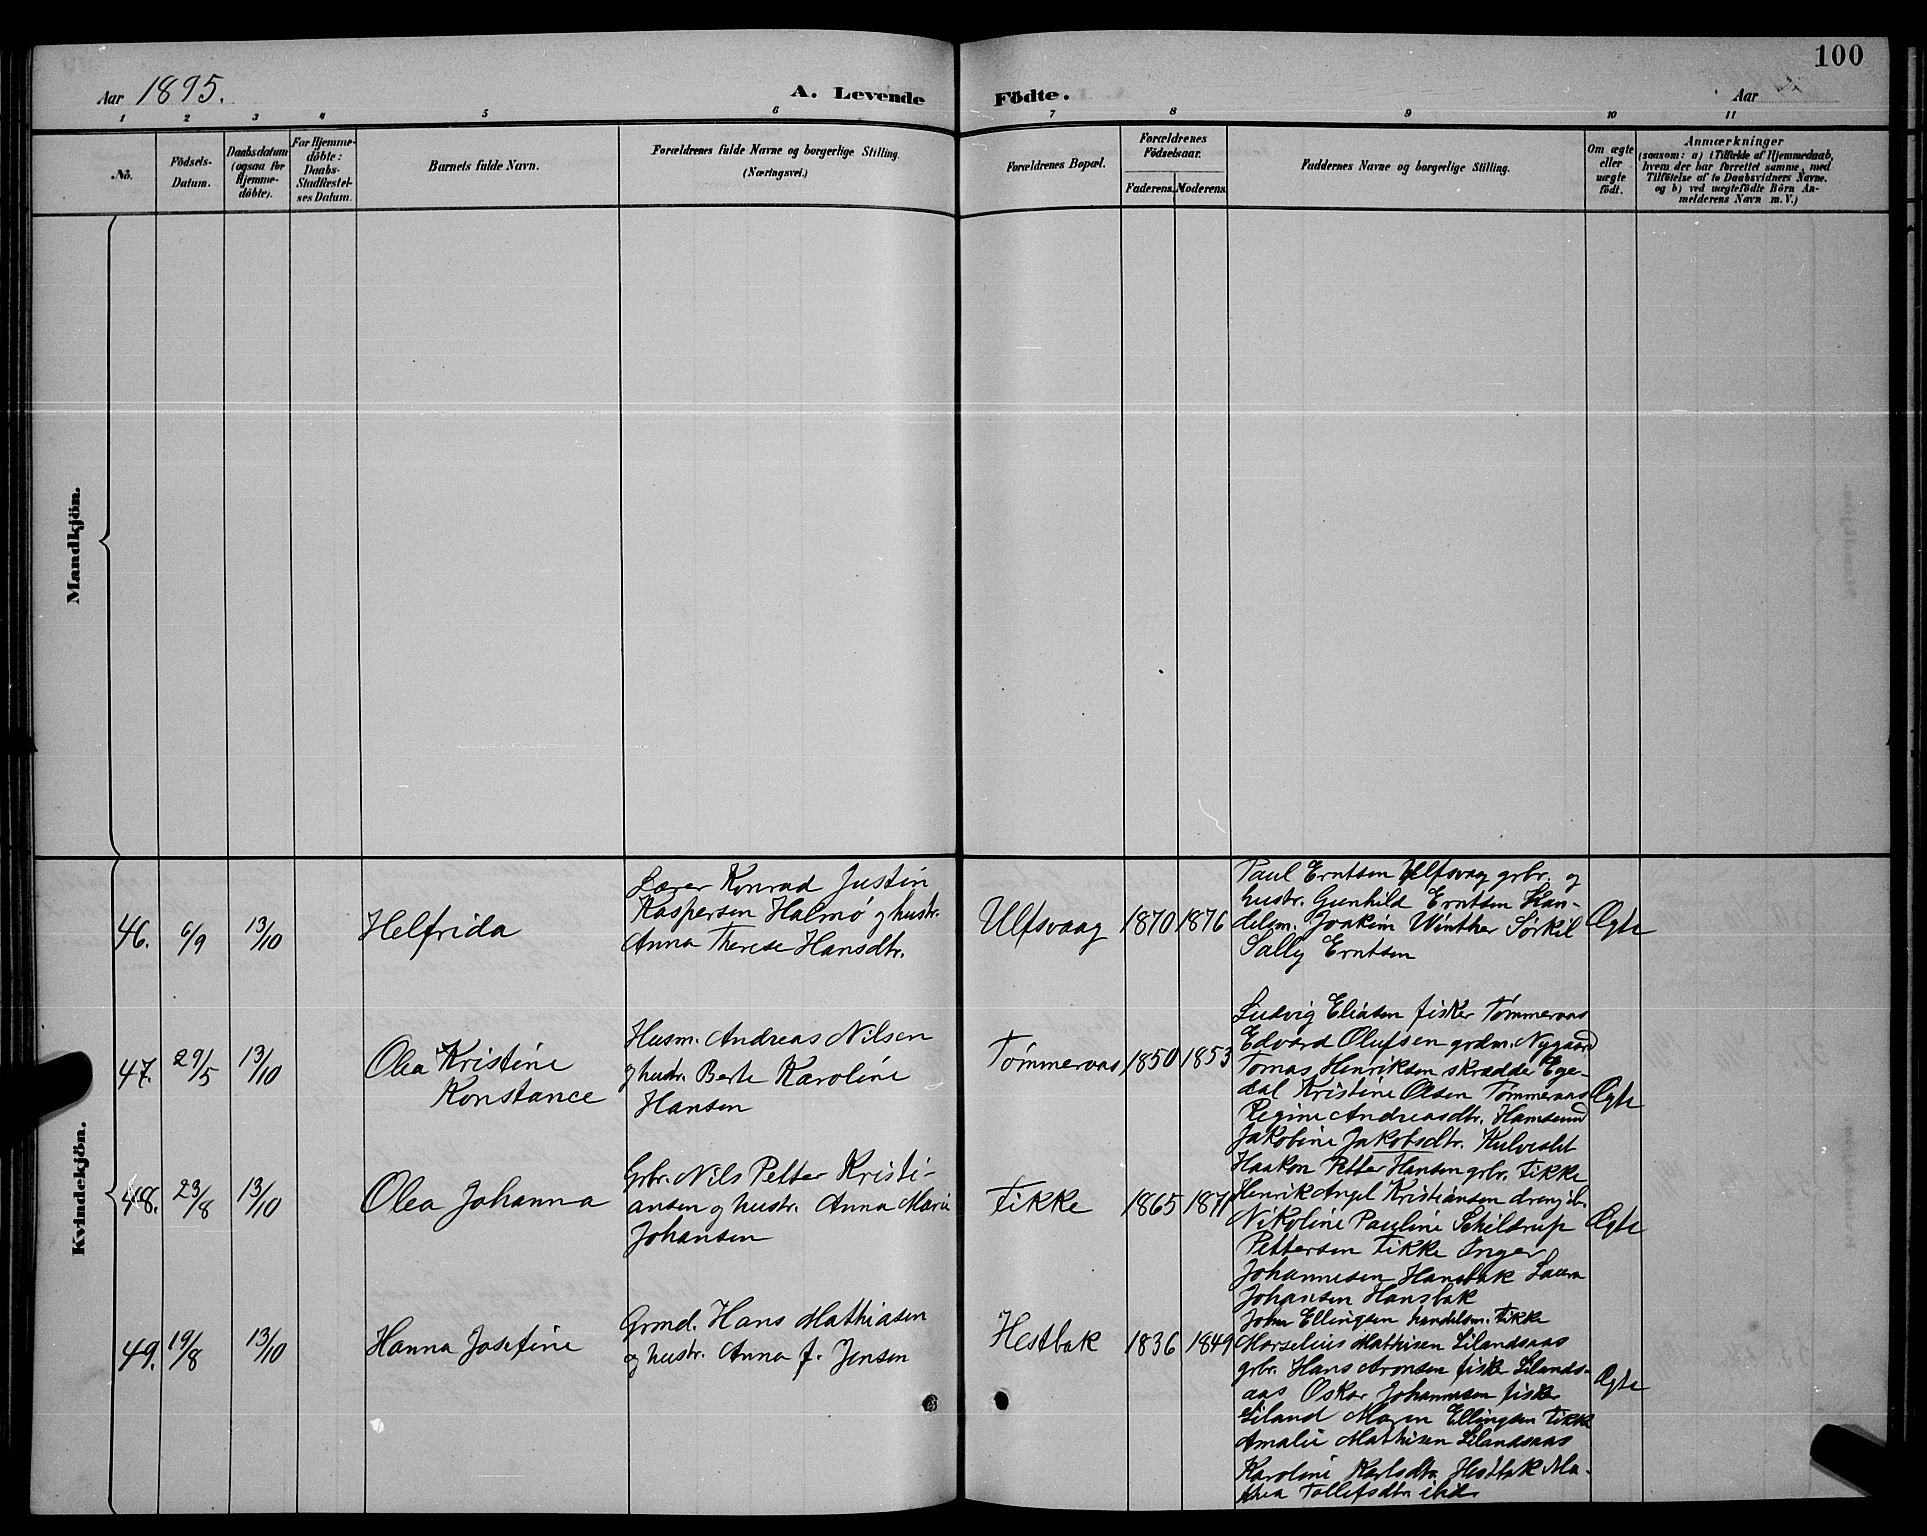 100
Aar 1895.
A. Levende
Födte.
Aar
1 2 3 4 5 6 7 8 9 10 11
No.
Födsels-
Datum.
Daabsdatum
(ogsaa for
Hjemme-
döbte).
For Hjemme-
döbte:
Daabs-
Stadfæstel-
ses Datum.
Barnets fulde Navn.
Forældrenes fulde Navne og borgerlige Stilling.
(Næringsvei.)
Forældrenes Bopæl.
Forældrenes
Födselsaar.
Faderens.
Moderens.
Faddernes Navne og borgerlige Stilling.
Om ægte
eller
uægte
födt.
Anmærkninger
(saasom: a) i Tilfælde af Hjemmedaab,
hvem der har forrettet samme, med
Tilföielse af to Daabsvidners Navne.
og b) ved uægtefödte Börn An-
melderens Navn m. V.)
Mandkjön.
Kvindekjön.
46.
6/9
13/10
Helfrida
Lærer Konrad Justin
Kaspersen Halmö og hustr.
Anna Therese Hansdtr.
Ulfsvaag
1870
1876
Paul Erntsen Ulfsvag grbr. og
hustr. Gunhild Erntsen Han-
delsm. Joakim Winther Sörkil
Sally Erntsen
Ægte
47.
29/5
13/10
Olea Kristine
Konstance
Husm. Andreas Nilsen
og hustr. Berte Karoline
Hansen
Tømmeraas
1850
1853
Ludvig Eliasen fisker Tømmeraas
Edvard Olufsen grdm. Nygaard
Tomas Henriksen skrædder Ege-
dal Kristine Olsen Tømmeraas
Regine Andreasdtr. Hamsund
Jakobine Jakobsdtr.
Ægte
48.
23/8
13/10
Olea Johanna
Grbr. Nils Petter Kristi-
ansen og hustr. Anna Marie
Johansen
Fikke
1865
1871
Haakon Petter Hansen grbr. Fikke
Henrik Angel Kristiansen dreng ib.
Nikoline Pauline Schildrup
Pettersen Fikke Inger
Johannesen Hansbak Laura
Johansen Hansbak
Ægte
49.
19/8
13/10
Hanna Josefine
Grmd. Hans Mathiasen
og hustr. Anna f. Jensen
Hestbak
1836
1849
John Ellingsen handelsm. Fikke
Marselius Mathisen Lilandsaas
grbr. Hans Aronsen fisker Lilands-
aas Oskar Johannesen fisker
Liland Maren Ellingsen Fikke
Amalie Mathisen Lilandsaas
Karoline Karlsdtr. Hestbak Ma-
thea Tollefsdtr. ibid.
Ægte